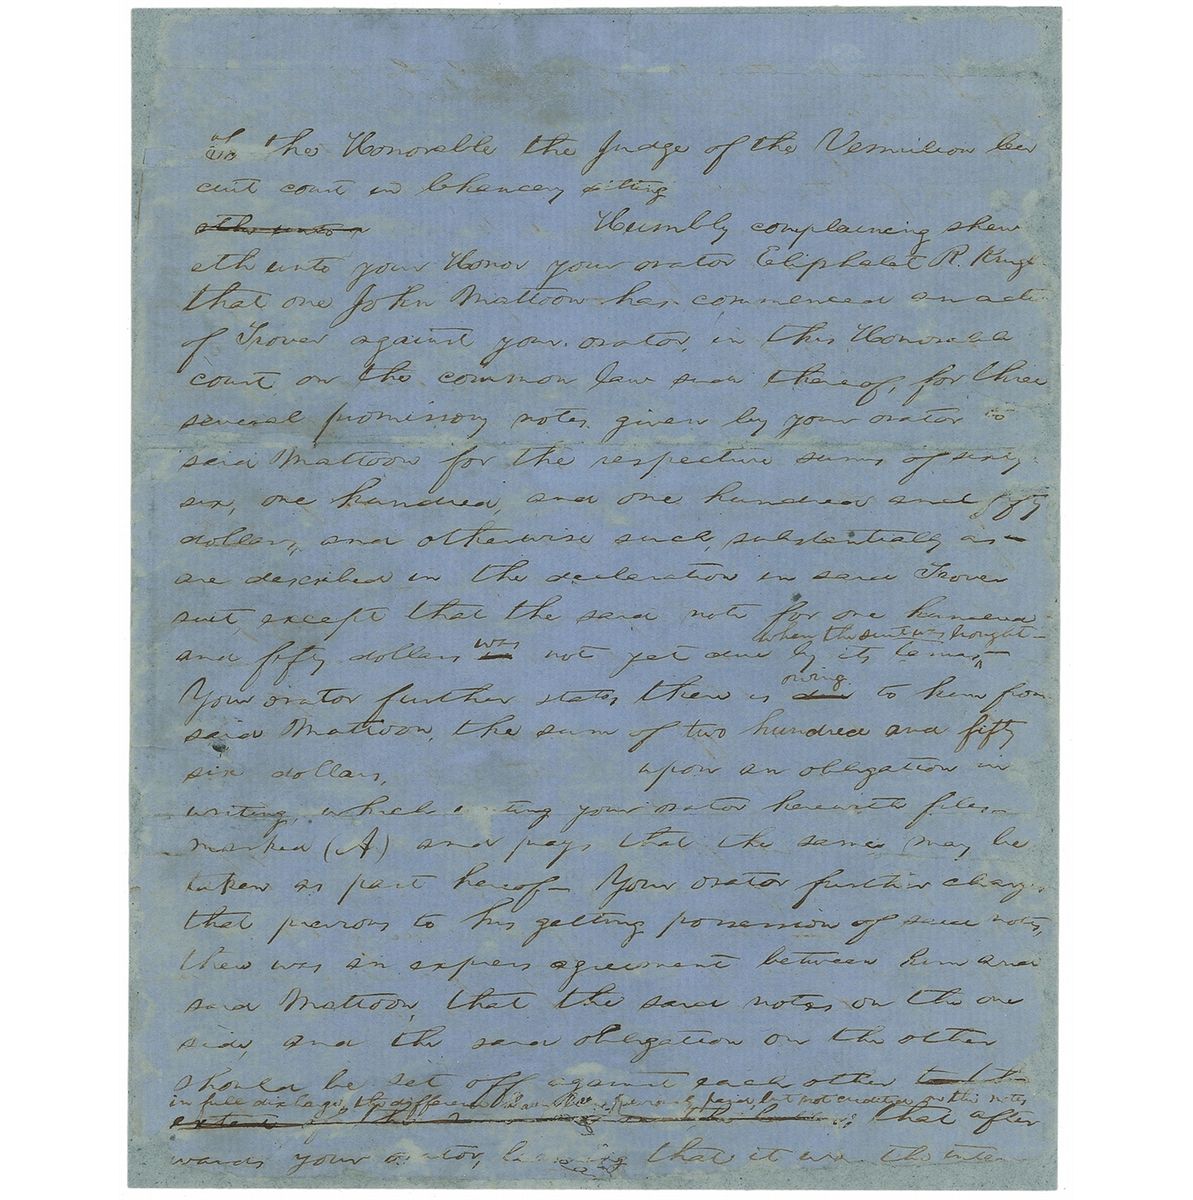 To the Honorable the Judge of the Vermilion Cir
cuit court in Chancery sitting
Humbly complaining shew
eth unto your Honor your orator Eliphalet R. King
that one John Mattoon has commenced an acti
of Trover against your orator, in this Honorable
court on the common law side thereof, for three
several promissory notes given by your orator to
said Mattoon for the respective sums of sixty
six, one hundred, and one hundred and fifty
dollars, and otherwise such, substantially as
are described in the declaration in said Trover
suit, except that the said note for one hundred
when the suit was brought
and fifty dollars was not yet due by its terms
owing
Your orator further states there is due to him from
said Mattoon, the sum of two hundred and fifty
six dollars, upon an obligation in
writing, which writing your orator herewith files
marked (A) and prays that the same may be
taken as part hereof— Your orator further charges
that previous to his getting possession of said notes,
there was an express agreement between him and
said Mattoon, that the said notes on the one
side, and the said obligation on the other
should be set off against each other
in full discharge, the difference being paid, but not credited on the notes
extent that after
wards your orator, that it was the inten